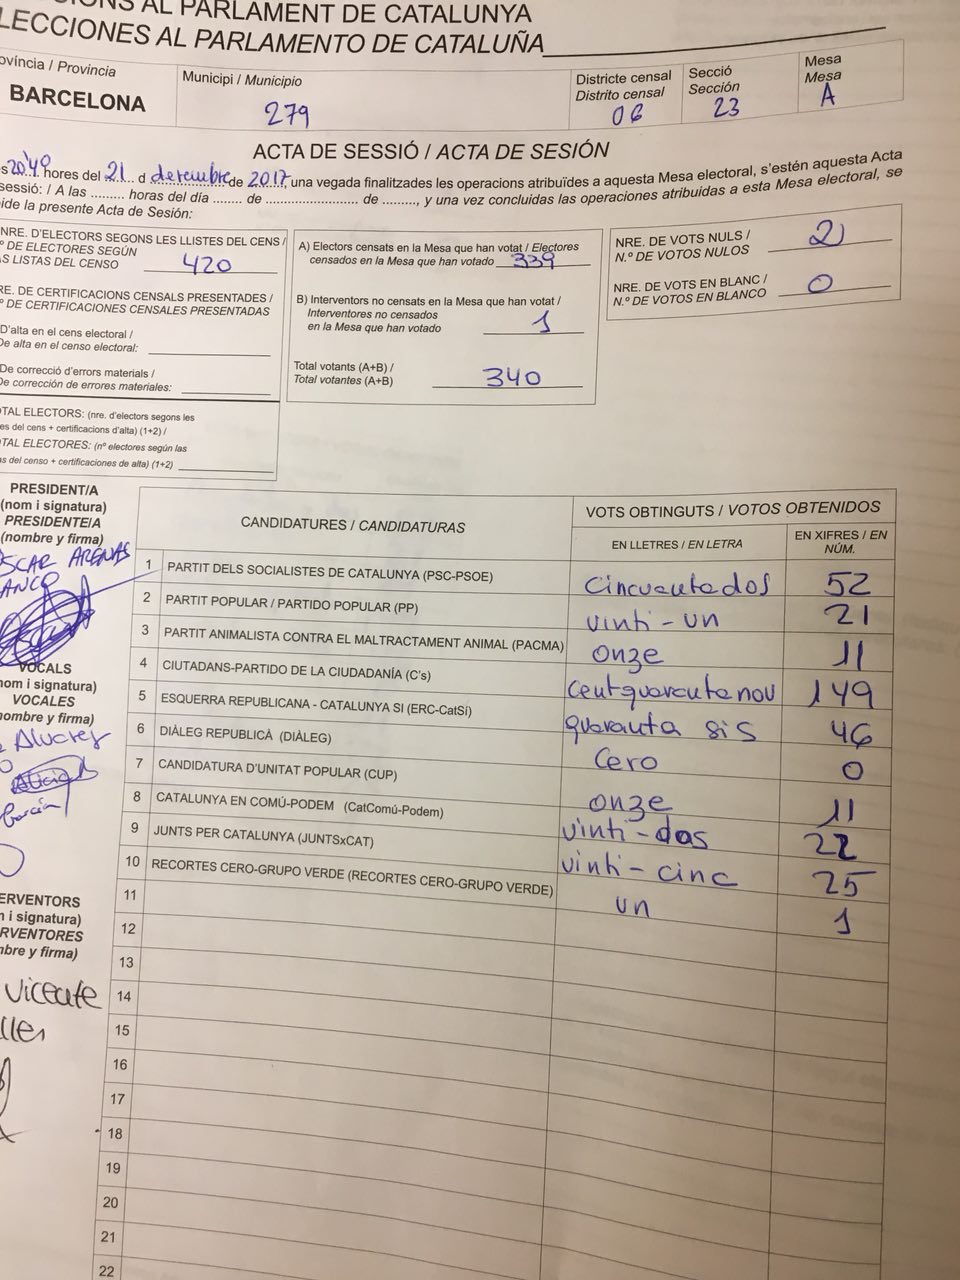 AL PARLAMENT DE CATALUNYA
ELECCIONES AL PARLAMENTO DE CATALUÑA
Província / Provincia
BARCELONA
Municipi / Municipio
279
Districte censal
Distrito censal
06
Secció
Sección
23
Mesa
Mesa
A
ACTA DE SESSIÓ / ACTA DE SESIÓN
20'40 hores del 21 d desembre de 2017, una vegada finalitzades les operacions atribuïdes a aquesta Mesa electoral, s'estén aquesta Acta
sessió: / A las ......... horas del día ....... de ...................... de ........, y una vez concluidas las operaciones atribuidas a esta Mesa electoral, se
ide la presente Acta de Sesión:
NRE. D'ELECTORS SEGONS LES LLISTES DEL CENS /
Nº DE ELECTORES SEGÚN
AS LISTAS DEL CENSO 420
RE. DE CERTIFICACIONS CENSALS PRESENTADES /
º DE CERTIFICACIONES CENSALES PRESENTADAS
D'alta en el cens electoral /
De alta en el censo electoral:
De correcció d'errors materials /
De corrección de errores materiales:
OTAL ELECTORS: (nre. d'electors segons les
es del cens + certificacions d'alta) (1+2) /
OTAL ELECTORES: (nº electores según las
as del censo + certificaciones de alta) (1+2)
A) Electors censats en la Mesa que han votat / Electores
censados en la Mesa que han votado 339
B) Interventors no censats en la Mesa que han votat /
Interventores no censados
en la Mesa que han votado 1
Total votants (A+B) /
Total votantes (A+B) 340
NRE. DE VOTS NULS /
N.º DE VOTOS NULOS 2
NRE. DE VOTS EN BLANC /
N.º DE VOTOS EN BLANCO 0
PRESIDENT/A
(nom i signatura)
PRESIDENTE/A
(nombre y firma)
OSCAR ARENAS
VOCALS
nom i signatura)
VOCALES
nombre y firma)
Alvarez
Alicia
García
ERVENTORS
n i signatura)
RVENTORES
mbre y firma)
Vicente
CANDIDATURES / CANDIDATURAS
VOTS OBTINGUTS / VOTOS OBTENIDOS
EN LLETRES / EN LETRA
EN XIFRES / EN
NÚM.
1 PARTIT DELS SOCIALISTES DE CATALUNYA (PSC-PSOE) cincuantados 52
2 PARTIT POPULAR / PARTIDO POPULAR (PP) vinti-un 21
3 PARTIT ANIMALISTA CONTRA EL MALTRACTAMENT ANIMAL (PACMA) onze 11
4 CIUTADANS-PARTIDO DE LA CIUDADANÍA (C's) centquarantanou 149
5 ESQUERRA REPUBLICANA - CATALUNYA SI (ERC-CatSí) quaranta sis 46
6 DIÀLEG REPUBLICÀ (DIÀLEG) Cero 0
7 CANDIDATURA D'UNITAT POPULAR (CUP) onze 11
8 CATALUNYA EN COMÚ-PODEM (CatComú-Podem) vinti-dos 22
9 JUNTS PER CATALUNYA (JUNTSxCAT) vinti-cinc 25
10 RECORTES CERO-GRUPO VERDE (RECORTES CERO-GRUPO VERDE) un 1
11
12
13
14
15
16
17
18
19
20
21
22